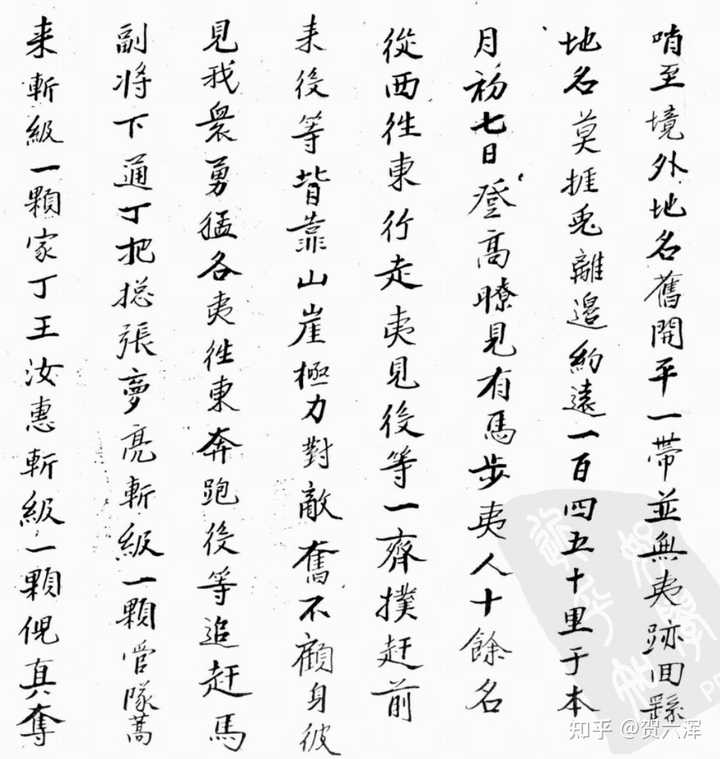 哨至境外地名舊開平一帶並無夷跡回繇
地名莫捱兎離邉約遠一百四五十里于本
月初七日登高瞭見有馬步夷人十餘名
從西徃東行走夷見後等一齊撲赶前
来後等背靠山崖極力對敵奮不顧身彼
見我衆勇猛各夷徃東奔跑後等追赶馬
副将下通丁把捴張夢亮斬級一顆管隊蒿
来斬級一顆家丁王汝惠斬級一顆倪真奪
知乎 @贺六浑